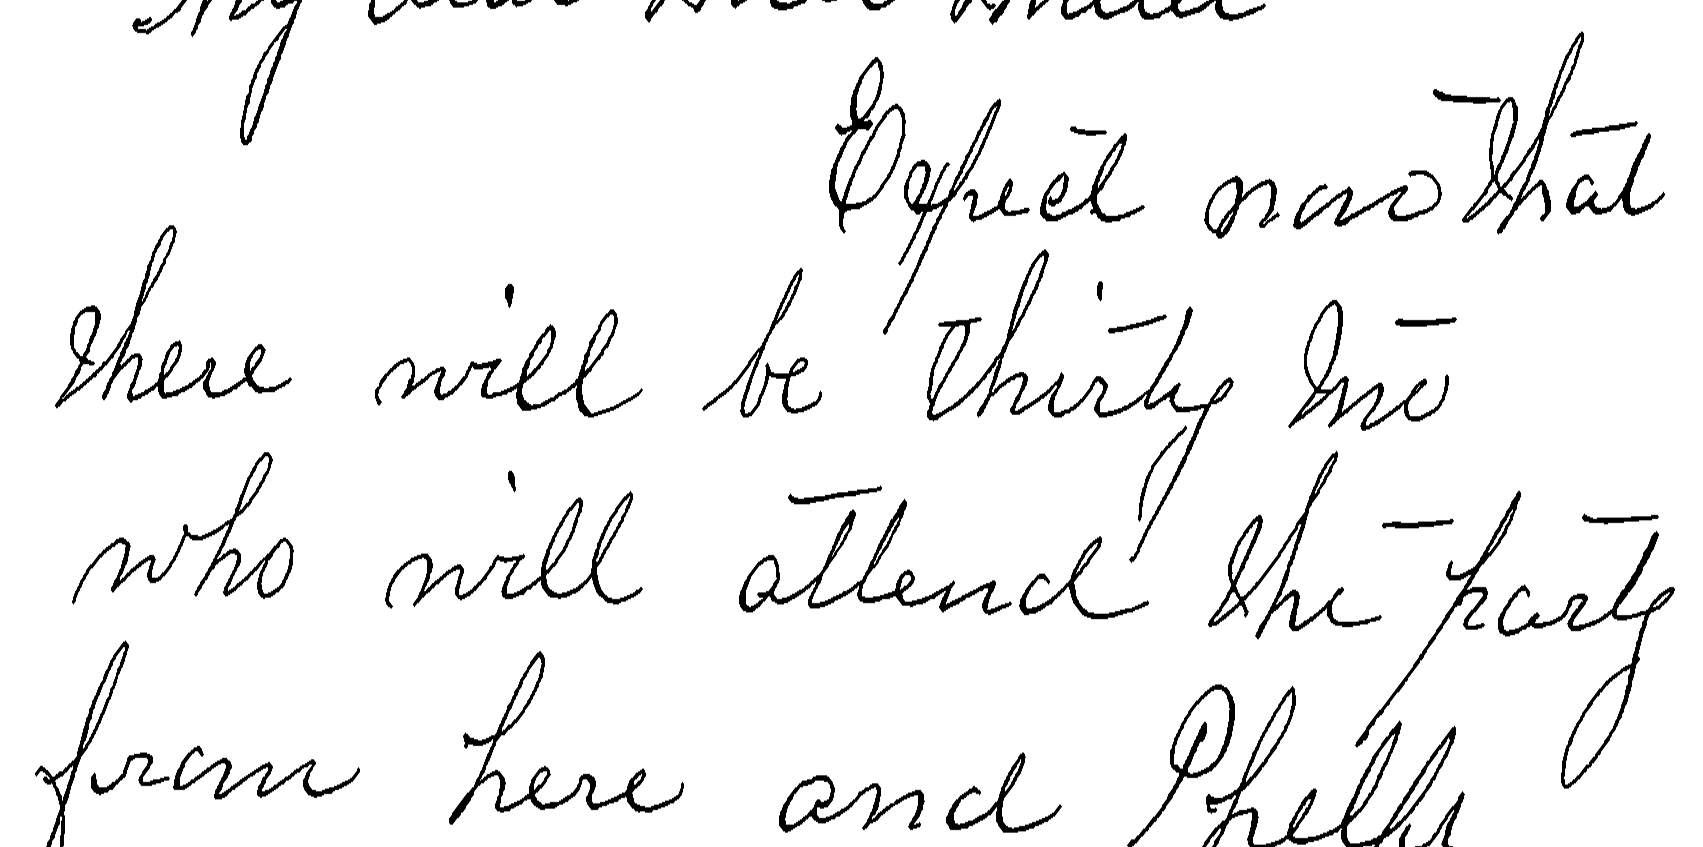 My dear
Expect now that
there will be thirty two
who will attend the party
from here and Phelps